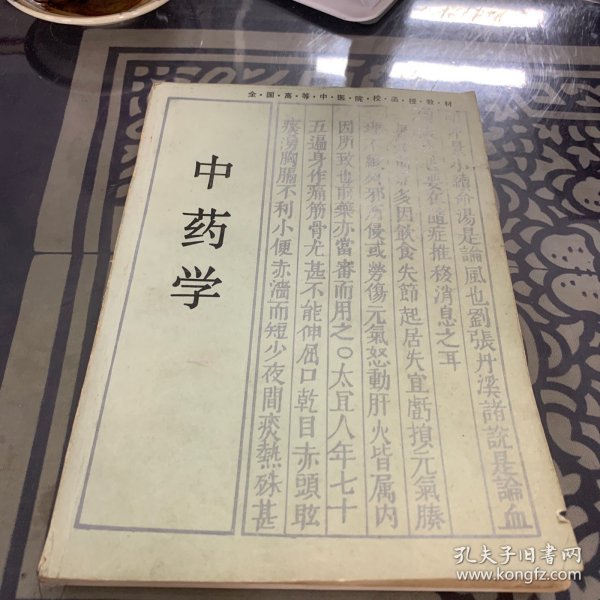 全·国·高·等·中·医·院·校·函·授·教·材
中药学
小續命湯是論風也劉張丹溪諸說是論血
隨症推移消息之耳
多因飲食失節起居失宜虧損元氣腠
邪所侵或勞傷元氣怒動肝火皆属内
因所致也前藥亦當審而用之○太宜人年七十
五遍身作痛筋骨尤甚不能伸屈口乾目赤頭眩
痰湧胸膈不利小便赤澁而短少夜間痰熱殊甚
孔夫子旧书网
www.kongfz.com